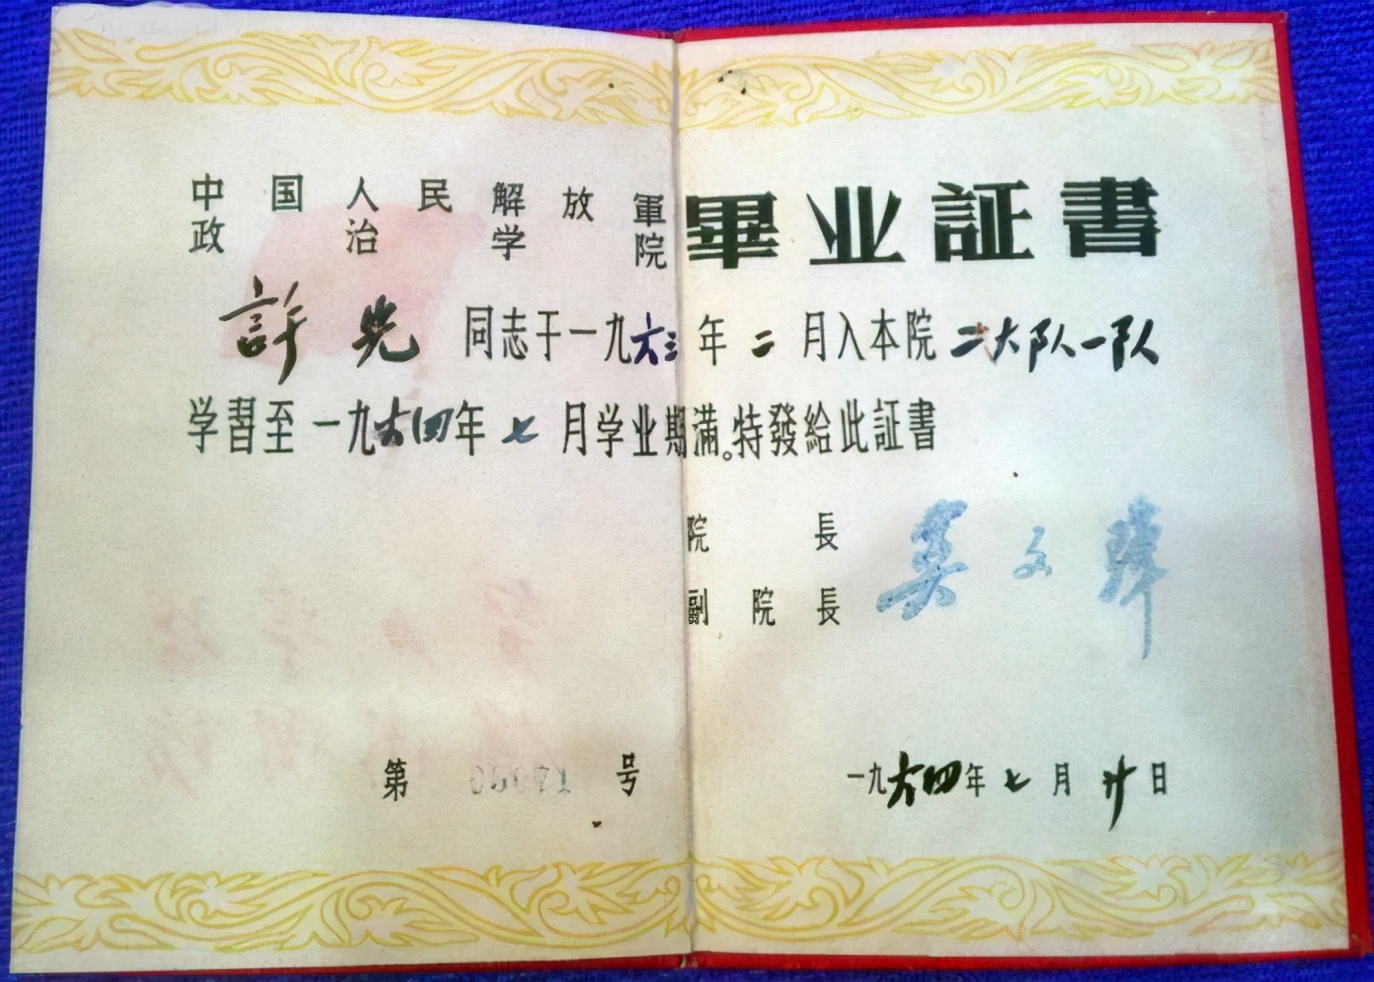 中国人民解放軍
政治学院
畢业証書
許光 同志于一九六三年二月入本院二大队一队
学習至一九六四年七月学业期滿。特發給此証書
院長
副院長
莫文驊
第 号
一九六四年七月廿日